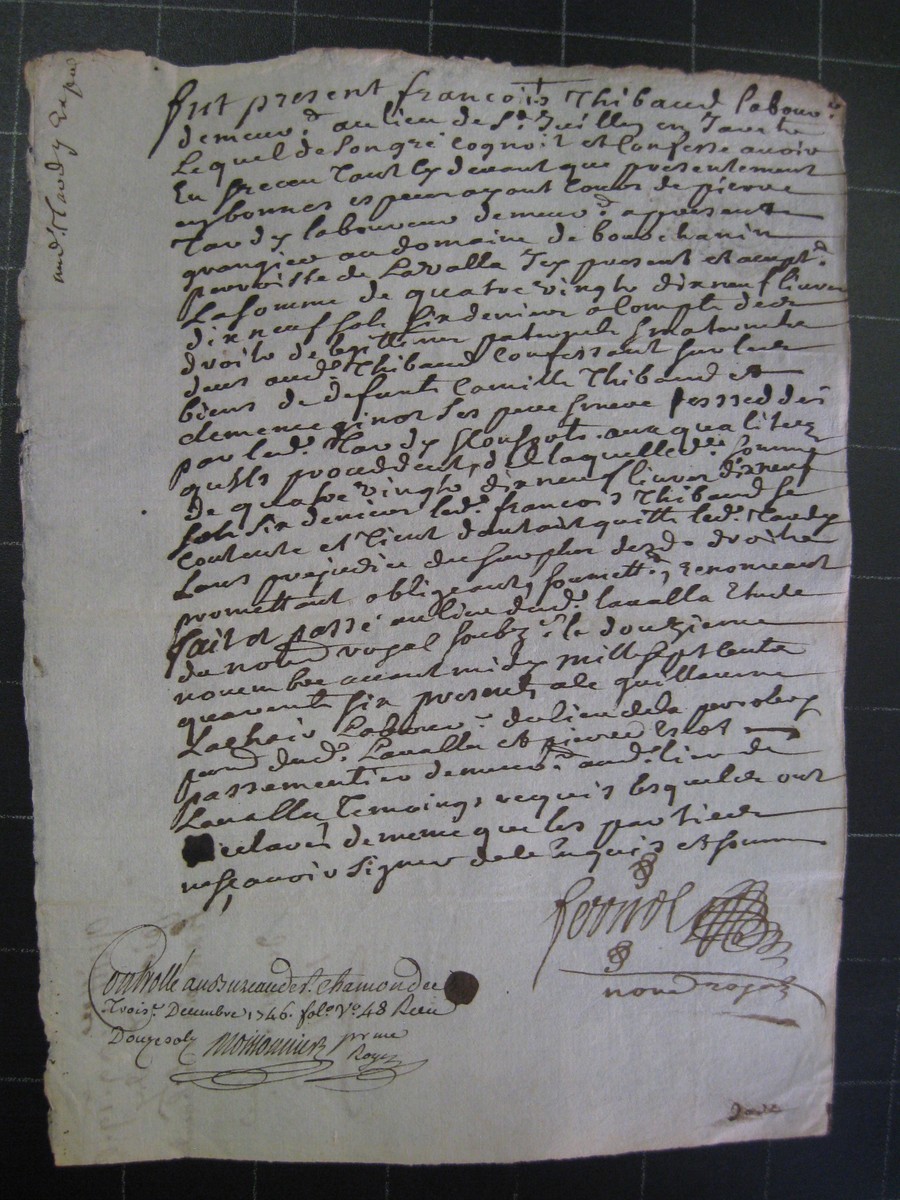 fut present francois Thibaud labour.r
demeur.t au lieu de St. Juilly en Jarets
Lequel de son gré cognoit et Confesse avoir
Eu Et receu tant Cy devant que presentement
en bonnes especes ayant Cours de pierre
tardy laboureur demeur.t a present
grangier au domaine de bourchanin
parroisse de Lavalla Icy present et accept.t
La somme de quatre vingts dixneuf livres
dix neuf sols six deniers a Compte des
droits de legitime paternels Et maternels
deus aud.t Thibaud Confessant sur les
biens de defunts Camille Thibaud et
clemence ginot Ses pere Et mere possedés
par led.t Tardy Et Consorts aux qualites
quils proceddent, de laquelle d.e Somme
de quatre vingts dixneuf livres dixneuf
sols six deniers led.t francois Thibaud se
Contente et tient d'autant quitte led.t Tardy
Sans prejudice du surplus desd.s droits
promettant obligeant, soumett.t, renonceant
fait et passé au lieu dud.t lavalla Etude
du no.re royal soubz.é le douzieme
novembre avant midy mil sept cents
quarante six presents a ce guillaume
Labour.r du lieu de la
par.se dud.t Lavalla et pierre
passementier demeur.t aud.t lieu de
Lavalla temoings requis lesquels ont
declaré de meme que les parties
ne scavoir signer de ce Enquis et somm
no.re royal
Controllé au Bureau de St. Chamond le
Trois.e Decembre 1746. fol.o V.o 48 Receu
Douze sols